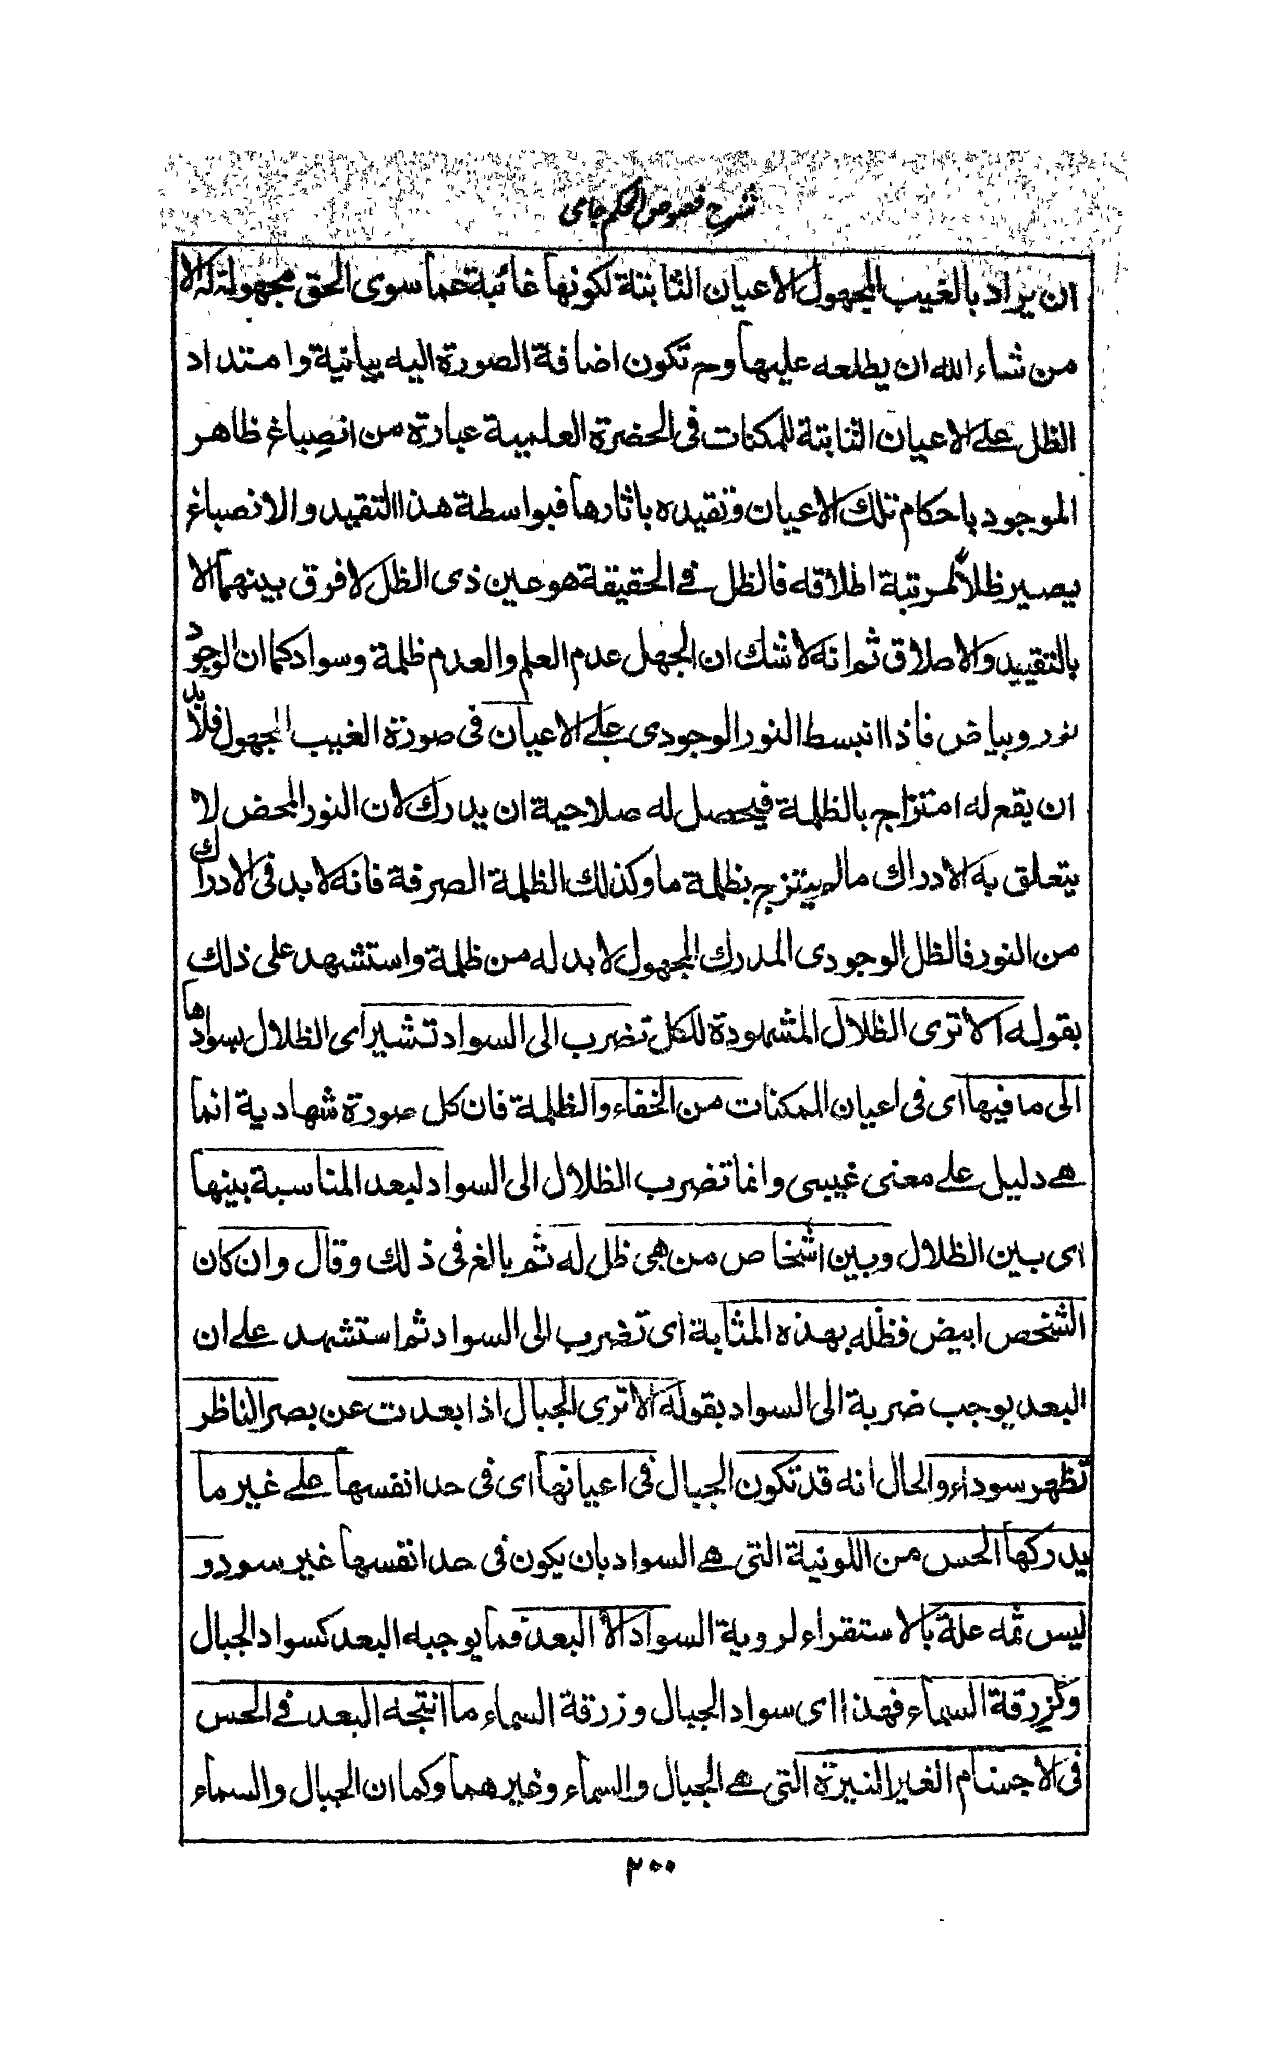 شرح فصوص الحكم جامى
ان يراد بالغيب المجهول الاعيان الثابتة لكونها غائبة عما سوى الحق مجهولة له الا
من شاء الله ان يطلعه عليها وح تكون اضافة الصورة اليه بيانية وامتداد
الظل على الاعيان الثابتة للمكنات فى الحضرة العلمية عبارة من انصباغ ظاهر
الموجود باحكام تلك الاعيان وتقيده باثارها فبواسطة هذا التقييد والانصباغ
يصير ظلاً لمرتبة اطلاقه فالظل فى الحقيقة هو عين ذى الظل لا فرق بينهما الا
بالتقييد والاطلاق ثم انه لا شك ان الجهل عدم العلم والعدم ظلمة وسواد كما ان الوجود
نور وبياض فاذا انبسط النور الوجودى على الاعيان فى صورة الغيب المجهول فلا بد
ان يقع له امتزاج بالظلمة فيحصل له صلاحية ان يدرك لان النور المحض لا
يتعلق به الادراك ما لم يمتزج بظلمة ما وكذلك الظلمة الصرفة فانه لا بد فى الادراك
من النور فالظل الوجودى المدرك المجهول لا بد له من ظلمة واستشهد على ذلك
بقوله الا ترى الظلال المشهودة للكل تضرب الى السواد تشير اى الظلال بسوادها
الى ما فيها اى فى اعيان الممكنات من الخفاء والظلمة فان كل صورة شهادية انما
هى دليل على معنى غيبى وانما تضرب الظلال الى السواد لبعد المناسبة بينها
اى بين الظلال وبين اشخاص من هى ظل له ثم بالغ فى ذلك وقال وان كان
الشخص ابيض فظله بهذه المثابة اى تضرب الى السواد ثم استشهد على ان
البعد يوجب ضربة الى السواد بقوله الا ترى الجبال اذا بعدت عن بصر الناظر
تظهر سوداء والحال انه قد تكون الجبال فى اعيانها اى فى حد انفسها على غير ما
يدركها الحس من اللونية التى هى السواد بان يكون فى حد انفسها غير سود و
ليس ثمه علة بالاستقراء لروية السواد الا البعد فما يوجبه البعد كسواد الجبال
وكزرقة السماء فهذا اى سواد الجبال وزرقة السماء ما انتجه البعد فى الحس
فى الاجسام الغير النيرة التى هى الجبال والسماء وغيرهما وكما ان الجبال والسماء
٢٠٠